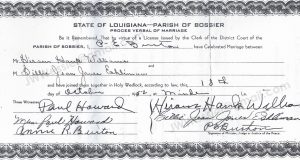 STATE OF LOUISIANA—PARISH OF BOSSIER
PROCES VERBAL OF MARRIAGE
Be it Remembered, That by virtue of a License issued by the Clerk of the District Court of the
PARISH OF BOSSIER, I, P. E. Burton have Celebrated Marriage between
Mr. Hiram Hank Williams and
M Billie Jean Jones Eshliman
and have joined them together in Holy Wedlock, according to law, this 18th
day of October 1952 Minden
Three Witnesses:
Paul Howard Hiram Hank William
Mrs Paul Howard Billie Jean Jones Eshliman
Annie R. Burton P E Burton